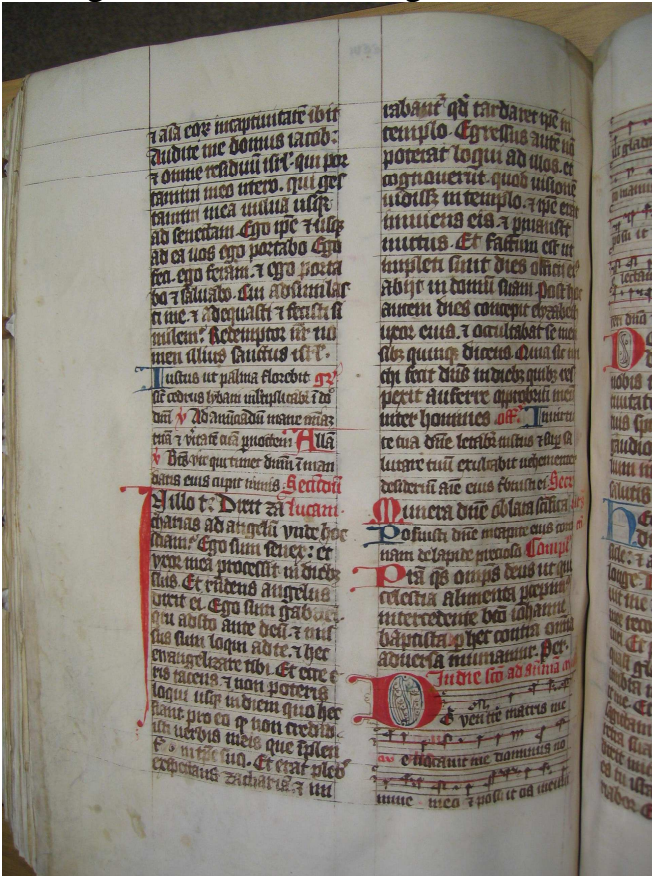 ⁊ aīa eorꝫ in captiuitatē ibit
Audite me domus iacob:
⁊ omne residuū isrł qui por
tamini meo utero. qui ges
tamini mea uulua usqꝫ
ad senectam Ego ip̄e ⁊ usqꝫ
ad ca uos ego portabo Ego
feci. ego feram. ⁊ ego porta
bo ⁊ saluabo. Cui assimilas
ti me. ⁊ adequasti ⁊ fecisti si
milem? Redemptor nr̄ no
men illius sanctus isrł.
Iustus ut palma florebit gr̄
sic̄ cedrus lybani m̄ltiplicabit̄ ī do
dn̄i ꝟ Ad anūciādū mane mīaꝫ
tuā ⁊ ū̓itatē tuā p̄ noctem Allā
ꝟ Bt̄s uir qui timet dn̄m ī man
datis eius cupit nimis. Secūdū
In illo t̄. Dixit za lucam.
charias ad angelū vnde hoc
sciam? Ego sum senex: et
uxor mea processit in diebꝫ
suis. Et rn̄dens angelus
dixit ei. Ego sum gabriel
qui adsto ante deū. ⁊ mis
sus sum loqui ad te. ⁊ hec
evangelizate tibi. Et ecce e
ris tacens ⁊ non poteris
loqui usqꝫ in diem quo hec
fiant pro eo ꝙ non credidi
sti uerbis meis que īplen
t̄ in tp̄e suo. Et erat plebs
expectans zachariā. ⁊ mi
rabant̄ qd̓ tardaret ip̄e in
templo. Egressus autē nō
poterat loqui ad illos. et
cognouerūt quod uisionē
uidiss̄ in templo. ⁊ ip̄e erat
innuens eis. ⁊ p̄mansit
mutus. Et factum est ut
impleti sunt dies officii ei̓
abijt in domū suam Post hos
autem dies concepit elyzabeth
uxor eius. ⁊ occultabat se men
sibꝫ quinqꝫ dicens. Quia sic m̄
chi fecit dn̄s in diebꝫ quibꝫ res
pexit auferre oprobriū meū
inter homines off̄. In uirtu
te tua dn̄e letabit̄ iustus ⁊ sup̄ sa
lutare tuū exultabit uehementer
desideriū aīe eius t̓buisti ei Secr̄
Munera dn̄e oblata sc̄ifica
Posuisti dn̄e in capite eius coro
nam de lapide precioso Compl̄
Pr̄a qs̄ omp̄s deus ut qui
celestia alimenta p̄cepim̓
intercedente bt̄o iohanne
baptista ꝑ hec contra omnia
aduersa muniamur. Per.
In die sc̄o ad sūmā
De ventre matris me
e uocauit me dominus no
mine meo ⁊ posuit os meum